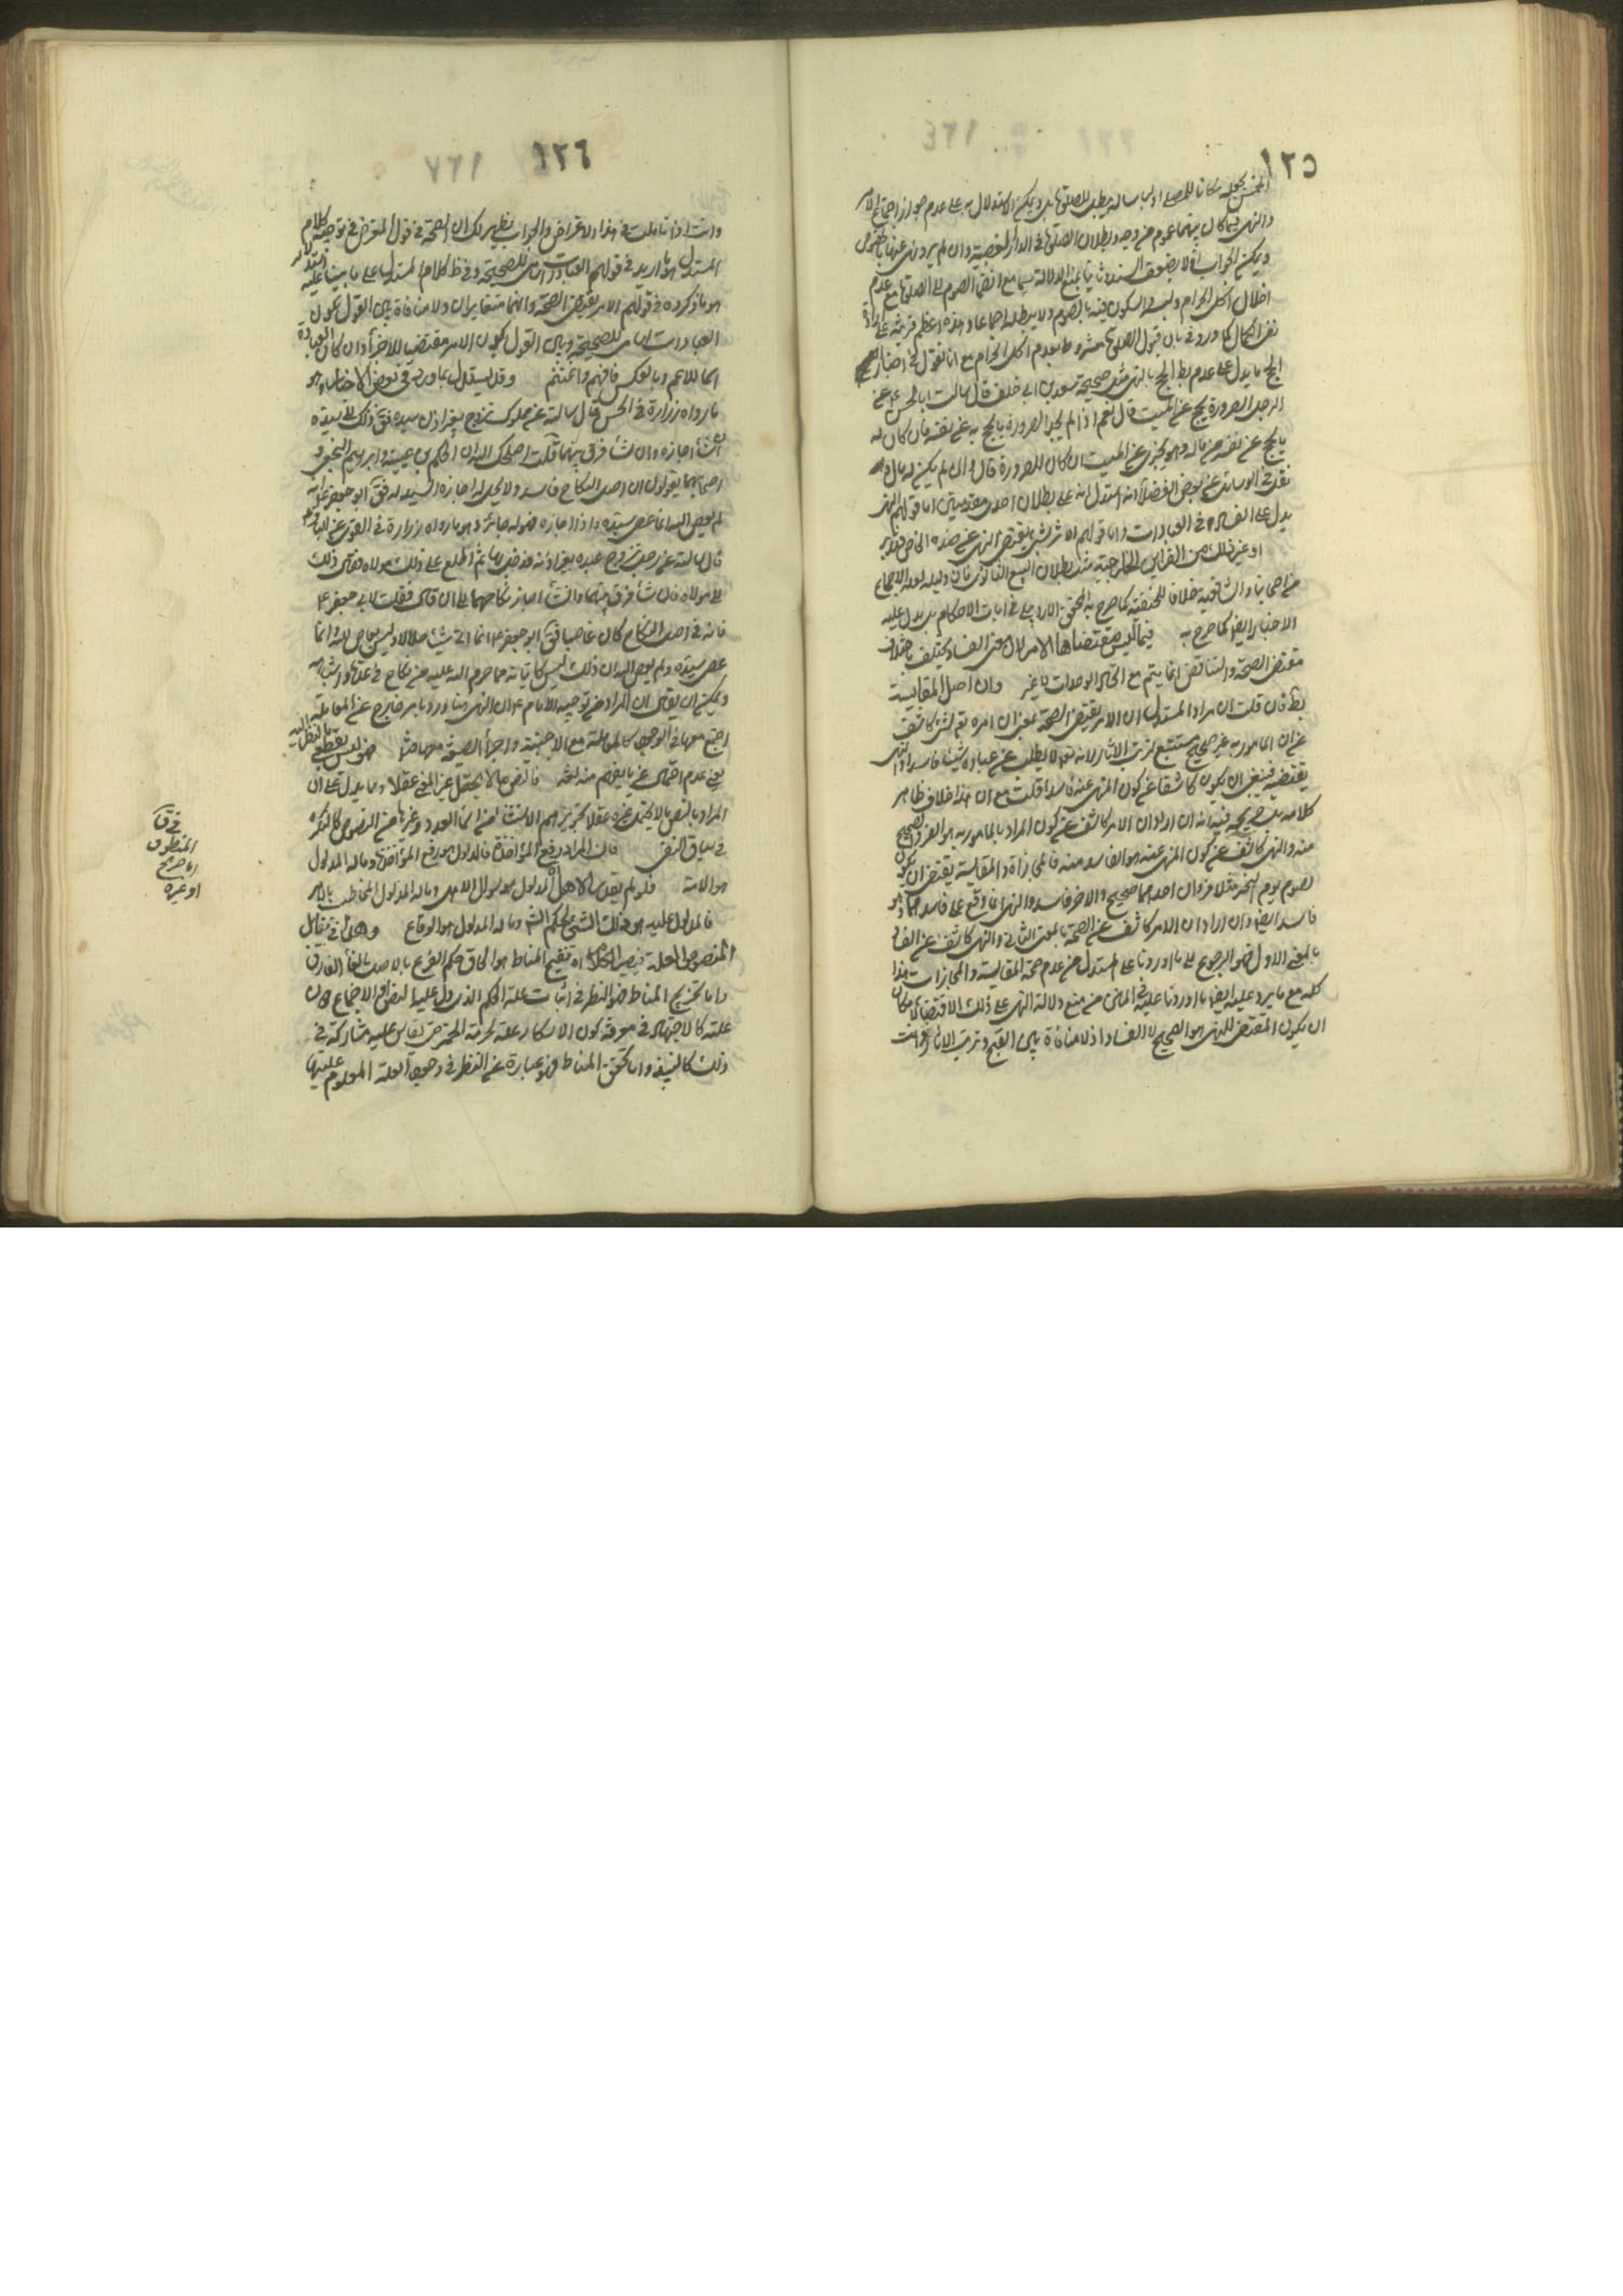 ١٢٥
والنهي فيما كان بينهما عموم من وجه وبطلان الصلوة في الدار المغصوبة وان لم يرد نهي عنها بالخصوص
اخلال اكل الحرام ولبسه والسكون فيه بالصوم ولا يبطله اجماعا وهذه اعظم قرينة على ارادة
نفي الكمال كما ورد في بان قبول الصلوة مشروط بعدم اكل الحرام مع انا نقول في اخبار
الحج ما يدل على عدم بط الحج بالنهي مثل صحيحة سعد بن ابي خلف قال سالت ابا الحسن ع عن
الرجل الصرورة يحج عن الميت قال نعم اذا لم يجد الصرورة ما يحج به عن نفسه فان كان له
ما يحج عن نفسه من ماله وهو يجزي عن الميت ان كان للصرورة مال وان لم يكن له مال
نقل في الوسائل عن بعض الفضلاء انه استدل به على بطلان احدى مقدمتين اما قولهم النهي
يدل على الفساد في العبادات واما قولهم الامر بالشيء يقتضي النهي عن ضده الخاص فتدبر
او غير ذلك من القراين الخارجية مثل بطلان البيع الثانوي فان دليله لعله الاجماع
من اصحابنا والشافعية خلافا للحنفية كما صرح به المحقق الاردبيلي في ايات الاحكام بل يدل عليه
الاخبار ايضا كما صرح به فيما ليس مقتضاها الامر لان معنى الفساد يختلف باختلاف
مقتضى الصحة والتناقض انما يتم مع اتحاد الوحدات لا غير وان اصل المقايسة
بط فان قلت ان مراد المستدل ان الامر يقتضي الصحة بمعنى ان امره تع بشيء كاشف
عن ان المامور به غير صحيح مستتبع لترتب الاثار لانه تع لا يطلب عن عباده شيئا فاسدا والنهي
يقتضيه فينبغي ان يكون كاشفا عن كون المنهي عنه فاسدا قلت مع ان هذا خلاف ظاهر
كلامه بل صريحه فيه انه ان اراد ان الامر كاشف عن كون المراد بالمامور به هو الفرد الصحيح
منه والنهي كاشف عن كون المنهي عنه هو الفاسد منه فالمجازاة والمقايسة يقتضي ان يكون
لصوم يوم النحر مثلا فردان احدهما صحيح والاخر فاسد والنهي انما وقع على فاسدهما وهو
فاسد ايضا وان اراد ان الامر كاشف عن الصحة بالمعنى الثاني والنهي كاشف عن الفساد
بالمعنى الاول فهو الرجوع الى ما اوردنا على المستدل من عدم صحة المقايسة والمجازات هذا
كله مع ما يرد عليه ايضا ما اوردنا عليه في الماضي من منع دلالة النهي على ذلك الاقتضاء لامكان
ان يكون المقتضي للنهي هو الصحيح لا الفساد اذ لا منافاة بين القبح وترتب الاثار وانت
١٢٦
وانت اذا تاملت في هذا الاعتراض والجواب يظهر لك ان الصحة في قول المعترض في توجيه كلام
المستدل هو ما اريد في قولهم العبادات اسامي للصحيحة وفي ظ كلام المستدل على ما بينا عليه
هو ما ذكروه في قولهم الامر يقتضي الصحة وانهما متغايران ولا منافاة بين القول بكون
العبادات اسامي للصحيحة وبين القول بكون الامر مقتضيا للاجزاء وان كان العبادة
اسما للاعم وبالعكس فافهم واغتنم وقد يستدل بما ورد في بعض الاخبار وهو
ما رواه زرارة في الحسن قال سالته عن مملوك تزوج بغير اذن سيده فق ذلك الى سيده
ان شاء اجازه وان شاء فرق بينهما قلت اصلحك الله ان الحكم بن عيينة وابراهيم النخعي و
اصحابهما يقولون ان اصل النكاح فاسد ولا يحل له اجازة السيد له فق ابو جعفر ع انه
لم يعص الله انما عصى سيده واذا اجازه فهو له جائز وهو ما رواه زرارة في القوي عن الباقر ع
قال سالته عن رجل تزوج عبده بغير اذنه فدخل بها ثم اطلع على ذلك مولاه فقال ذلك
الى مولاه فان شاء فرق بينهما وان شاء اجاز نكاحهما الى ان قال فقلت لابي جعفر ع
فانه في اصل النكاح كان عاصيا فق ابو جعفر ع انما اتى شيئا حلالا وليس بعاص لله وانما
عصى سيده ولم يعص الله ان ذلك ليس كاتيانه ما حرم الله عليه من نكاح في عدة واشباهه
ويمكن ان يقال ان المراد من توجيه الامام ع ان النهي هنا ورد بامر خارج عن المعاملة
اجتمع معها في الوجود كالمعاملة مع الاجنبية واجراء الصيغة معها مثلا
يعني عدم احتمال غير ما يفهم منه لغة فالنص ما لا يحتمل غير المعنى عقلا وما يدل على ان
المراد بالنص ما لا يحتمل غيره عقلا تجويزهم الاستثناء من اسماء العدد وغيرها من النصوص كالنكرة
في سياق النفي فان المراد رفع المؤاخذة فالدلول هو رفع المؤاخذة وما له المدلول
هو الامة فلو لم يقدر الاهل المدلول هو سؤال الاهل وما له المدلول المخاطب بالامر
فالمدلول عليه هو ذلك الشيء للحكم الشـ وما له المدلول هو الوقاع وهذا في مقابل
المنصوص العلة فيصير الحكم اه تنقيح المناط هو الحاق حكم الفرع بالاصل بالغاء الفارق
واما تخريج المناط فهو النظر في اثبات علة الحكم الذي دل عليه النص او الاجماع دون
علته كالاجتهاد في معرفة كون الاسكار علة لحرمة الخمر حتى يقاس عليه مشاركه في
ذلك كالنبيذ واما تحقق المناط فهو عبارة عن النظر في وجود العلة المعلوم عليتها
في ق
المنطوق
اما صريح
او غيره